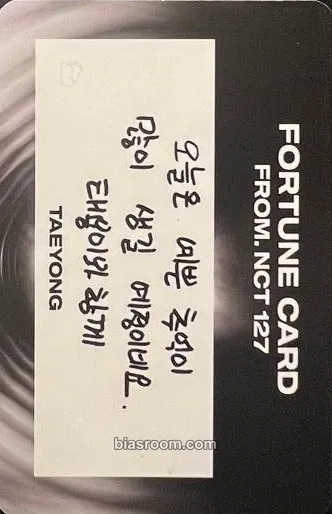 FORTUNE CARD
FROM. NCT 127
오늘은 예쁜 추억이
많이 생길 예정이네요.
태용이와 함께
TAEYONG
biasroom.com